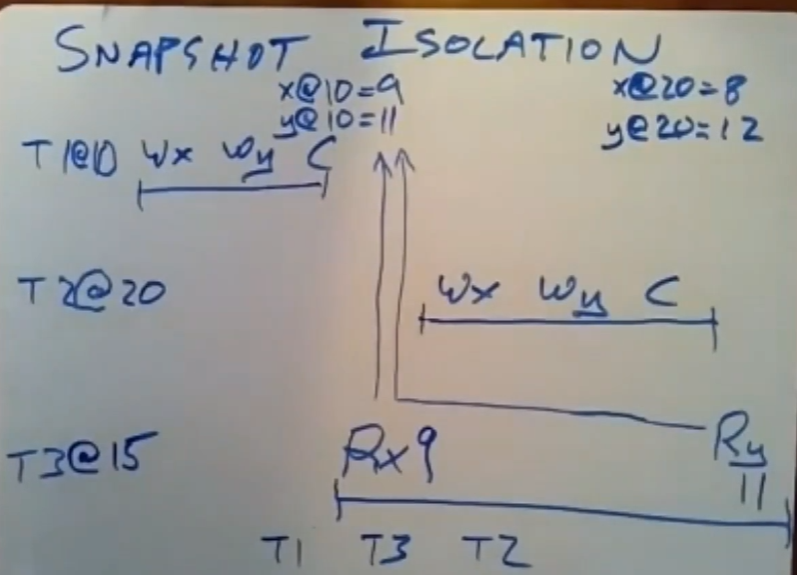 SNAPSHOT ISOLATION
x@10=9
y@10=11
x@20=8
y@20=12
T1@10 Wx Wy C
T2@20 Wx Wy C
T3@15 Rx9 Ry
11
T1 T3 T2